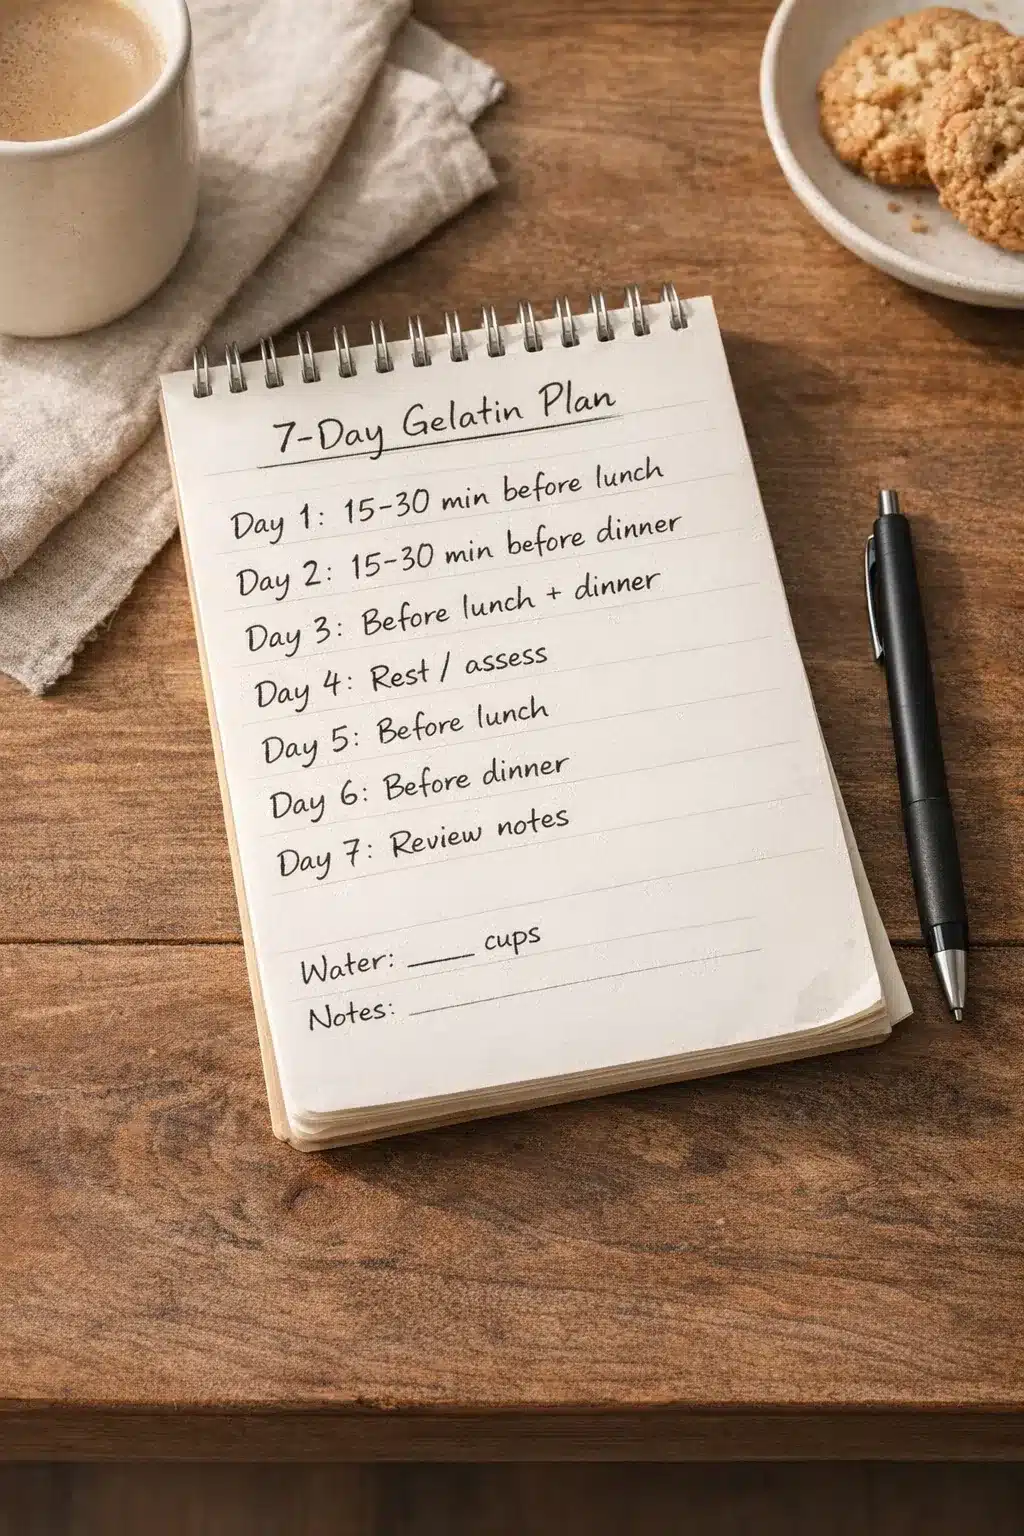 7-Day Gelatin Plan
Day 1: 15-30 min before lunch
Day 2: 15-30 min before dinner
Day 3: Before lunch + dinner
Day 4: Rest / assess
Day 5: Before lunch
Day 6: Before dinner
Day 7: Review notes
Water: ____ cups
Notes: ____________________